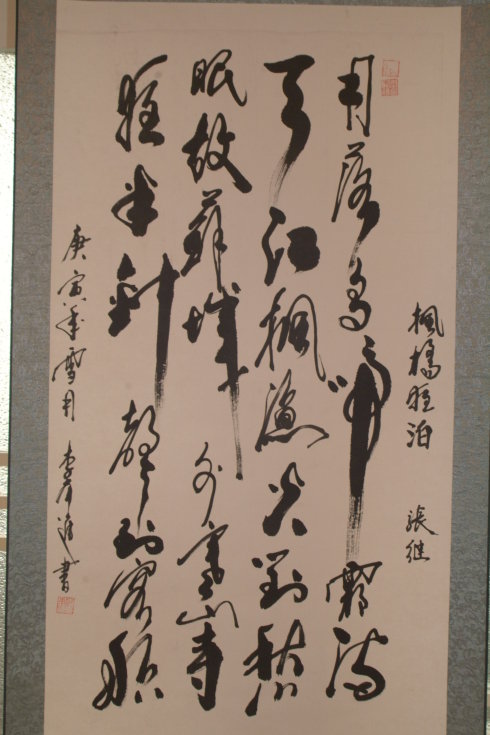 楓橋夜泊 張继
月落烏啼霜满
天江楓漁火對愁
眠故蘇城外寒山寺
夜半鐘聲到客船
庚寅年雪月 李 書